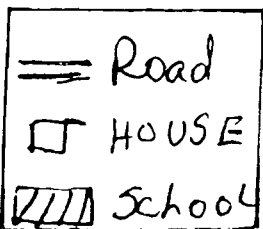 Road
HOUSE
School